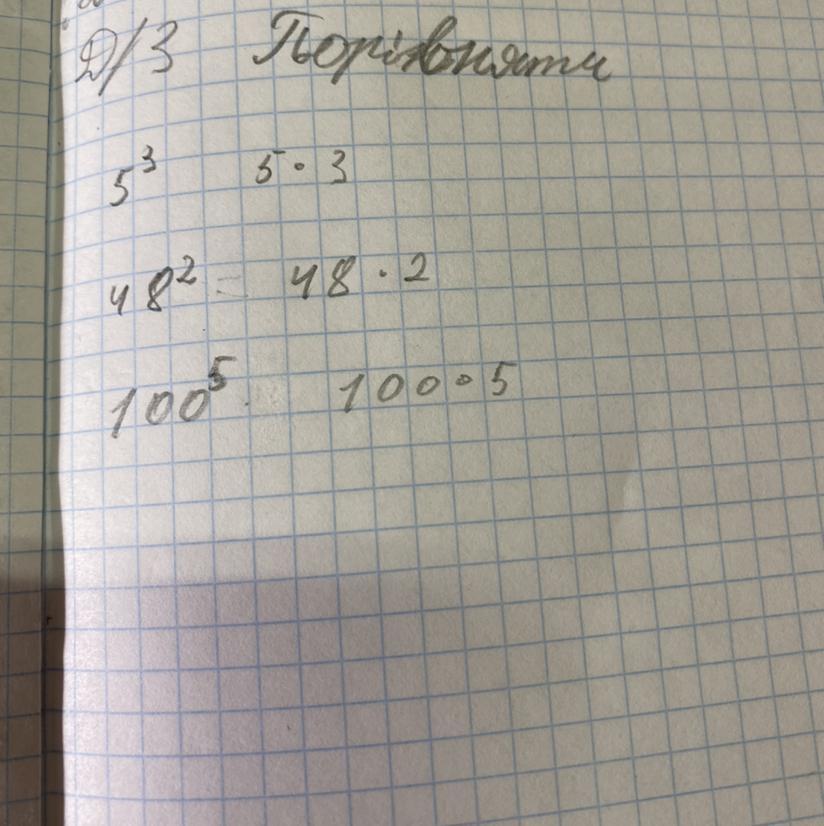 Д/З Порівняти
5³ 5 · 3
48² = 48 · 2
100⁵ 100 · 5